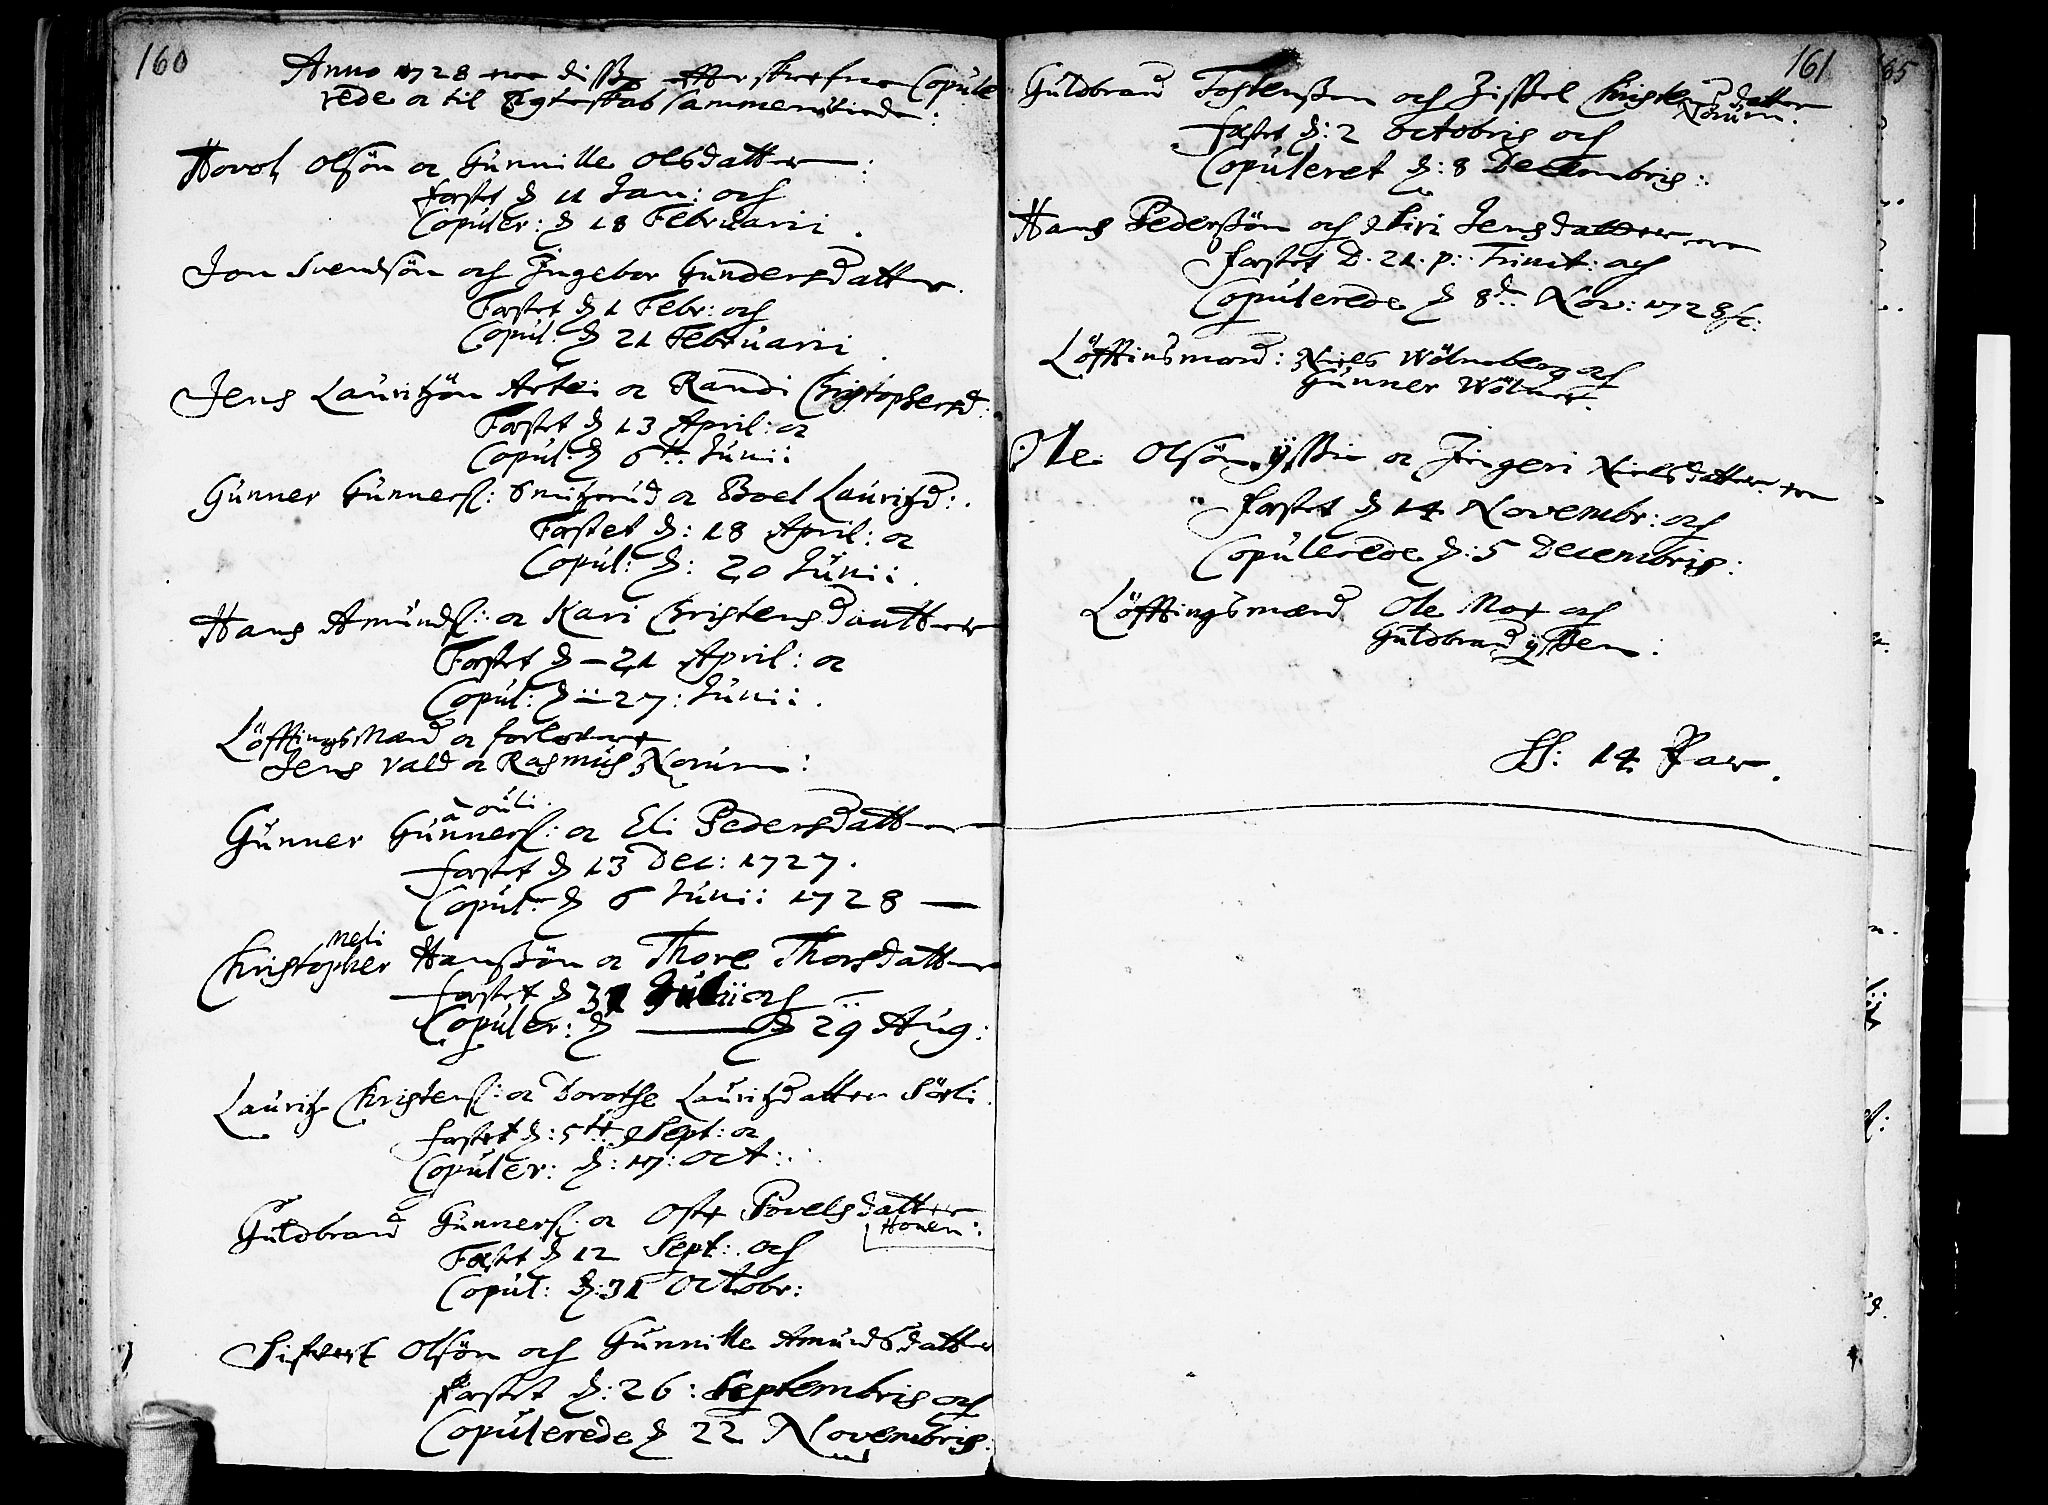 160
Anno 1728 ere disse effterskrefne Copule
rede oc til Egteskab sammenviede:
Hovol Olsön oc Gunnille Olsdatter:
fæstet d 11 Jan: och
Copuler: d 18 Februarii.
Jon Svendsön och Ingebor Gundersdatter.
Fæstet d 1 Febr: och
Copul: d 21 Februarii.
Jens Lauritzön oc Randi Christophersd:
Fæstet d 13 April: oc
Copul: d 6te Junii
Gunner Gunners: Smitzrud oc Boel Lauritzd:.
Fæstet d: 18 April: oc
Copul: d: 20 Junii.
Hans Amunds: oc Kari Christensdaatter
Fæstet d 21 April: oc
Copul: d 27: Junii.
Löfftingsmænd oc forlovere
Jens Vald oc Rasmus Norum:
Gunner Gunners: a öuli. oc Eli Pedersdatter
fæstet d 13 Dec: 1727.
Copul: d 6 Junii 1728
Christopher Meli Hanssön oc Thore Thorsdatter
fæstet d 31 Julii och
Copuler: d 29 Aug:
Lauritz Christens: oc Dorothe Lauritzdatter Sörli.
fæstet d: 5te Sept: oc
Copuler: d: 17: Oct:
Guldbrand Gunners: oc Oste Povelsdatter
Houen:
Fæstet d 12 Sept: och
Copul: d: 31 Octobr:
Sifvert Olsön och Gunnille Amundsdatter
fæstet d: 26: Septembris och
Copulerede d 22 Novembris:
161
Guldbrand Tostenssen och Zissel Christensdatter
Norum.
fæstet d: 2 octobris och
Copuleret d: 8 Decembris:
Hans Pederssön och Siri Jensdatter
fæstet D. 21. p: Trinit: och
Copulerede d 8de Nov: 1728 &c:
Löfftinsmænd: Niels Wölneberg och
Gunner Wölner.
Ole Olsön ÿssen oc Jngeri Nielsdatter
fæstet d 14 Novembr: och
Copulerede d: 5 Decembris:
Löfftingsmænd Ole Moe och
Guldbrand ÿssen:
SS: 14 Par.